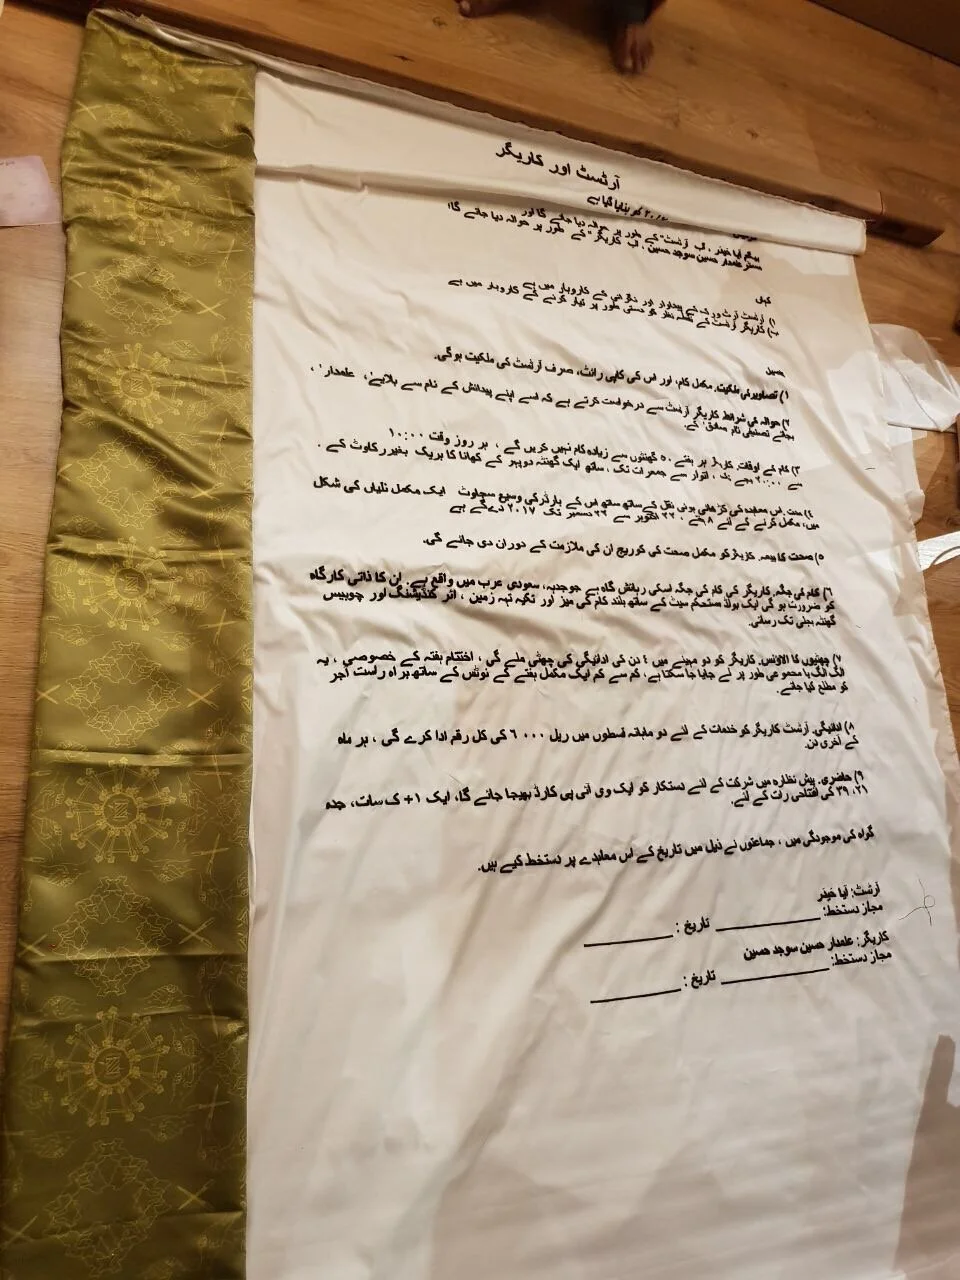 آرٹسٹ اور کاریگر
کو بنایا گیا ہے
بیگم آیا حیدر ، اب "آرٹسٹ" کے طور پر حوالہ دیا جائے گا اور
مسٹر علمدار حسین سوجد حسین، اب "کاریگر" کے طور پر حوالہ دیا جائے گا؛
کہاں
۱) آرٹسٹ آرٹ ورک کے پیداوار اور نگرانی کے کاروبار میں ہے
۲) کاریگر آرٹسٹ کے نقطہ نظر کو دستی طور پر تیار کرنے کے کاروبار میں ہے
۱) تصاویر کی ملکیت. مکمل کام، اور اس کی کاپی رائٹ، صرف آرٹسٹ کی ملکیت ہوگی.
۲) حوالہ کی شرائط کاریگر آرٹسٹ سے درخواست کرتے ہے کہ اسے اپنے پیدائش کے نام سے بلایے، 'علمدار' ،
بجائے تصنیفی نام 'صادق' کے.
۳) کام کے اوقات. کاریگر ہر ہفتے ۵۰ گھنٹوں سے زیادہ کام نہیں کریں گے ، ہر روز وقت ۱۰:۰۰
سے ۲۰:۰۰ بجے تک ، اتوار سے جمعرات تک ، ساتھ ایک گھنٹہ دوپہر کے کھانا کا بریک بغیر رکاوٹ کے .
٤) مدت. اس معاہدے کی کڑھائی ہوئی نقل کے ساتھ ساتھ اس کے بارڈر کی وسیع سجاوٹ ایک مکمل نلیاں کی شکل
میں، مکمل کرنے کے لئے ۸ ہفتے ، ۲۲ اکتوبر سے ۲۲ دسمبر تک ۲۰۱۷ دے گے ہے
۵) صحت کا بیمہ. کاریگر کو مکمل صحت کی کوریج ان کی ملازمت کے دوران دی جائے گی.
٦) کام کی جگہ. کاریگر کی کام کی جگہ اسکی رہائش گاہ ہے جو جدہ، سعودی عرب میں واقع ہے. ان کا ذاتی کارگاہ
کو ضرورت ہو گی ایک بولڈ مستحکم سیٹ کے ساتھ بلند کام کی میز اور تکیہ تہہ زمین ، ائر کنڈیشنگ اور چوبیس
گھنٹہ بجلی تک رسائی.
۷) چھٹیوں کا الاؤنس. کاریگر کو دو مہینے میں ٤ دن کی ادائیگی کی چھٹی ملے گی ، اختتام ہفتہ کے خصوصی ، یہ
الگ الگ یا مجموعی طور پر لے جایا جا سکتا ہے، کم سے کم ایک مکمل ہفتے کے نوٹس کے ساتھ براہ راست آجر
کو مطلع کیا جائے .
۸) ادائیگی. آرٹسٹ کاریگر کو خدمات کے لئے دو ماہانہ قسطوں میں ریل ٦٠٠٠ کی کل رقم ادا کرے گی ، ہر ماہ
کے آخری دن.
۹) حاضری. پیش نظارہ میں شرکت کے لئے دستکار کو ایک وی آئی پی کارڈ بھیجا جائے گا، ایک ۱+ ک سات، جدہ
۲۱،۳۹ کی افتتاحی رات کے لئے.
گواہ کی موجودگی میں ، جماعتوں نے ذیل میں تاریخ کے اس معاہدے پر دستخط کیے ہیں.
آرٹسٹ: آیا حیدر
مجاز دستخط: ____________ تاریخ : ____________
کاریگر: علمدار حسین سوجد حسین
مجاز دستخط: ____________ تاریخ : ____________